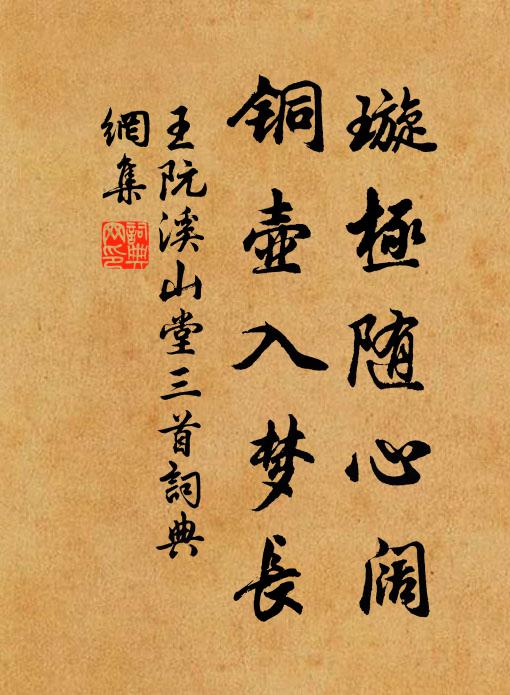 璇極随心阔
铜壶入梦長
王阮溪山堂三首詞典
網集
詞典
网印